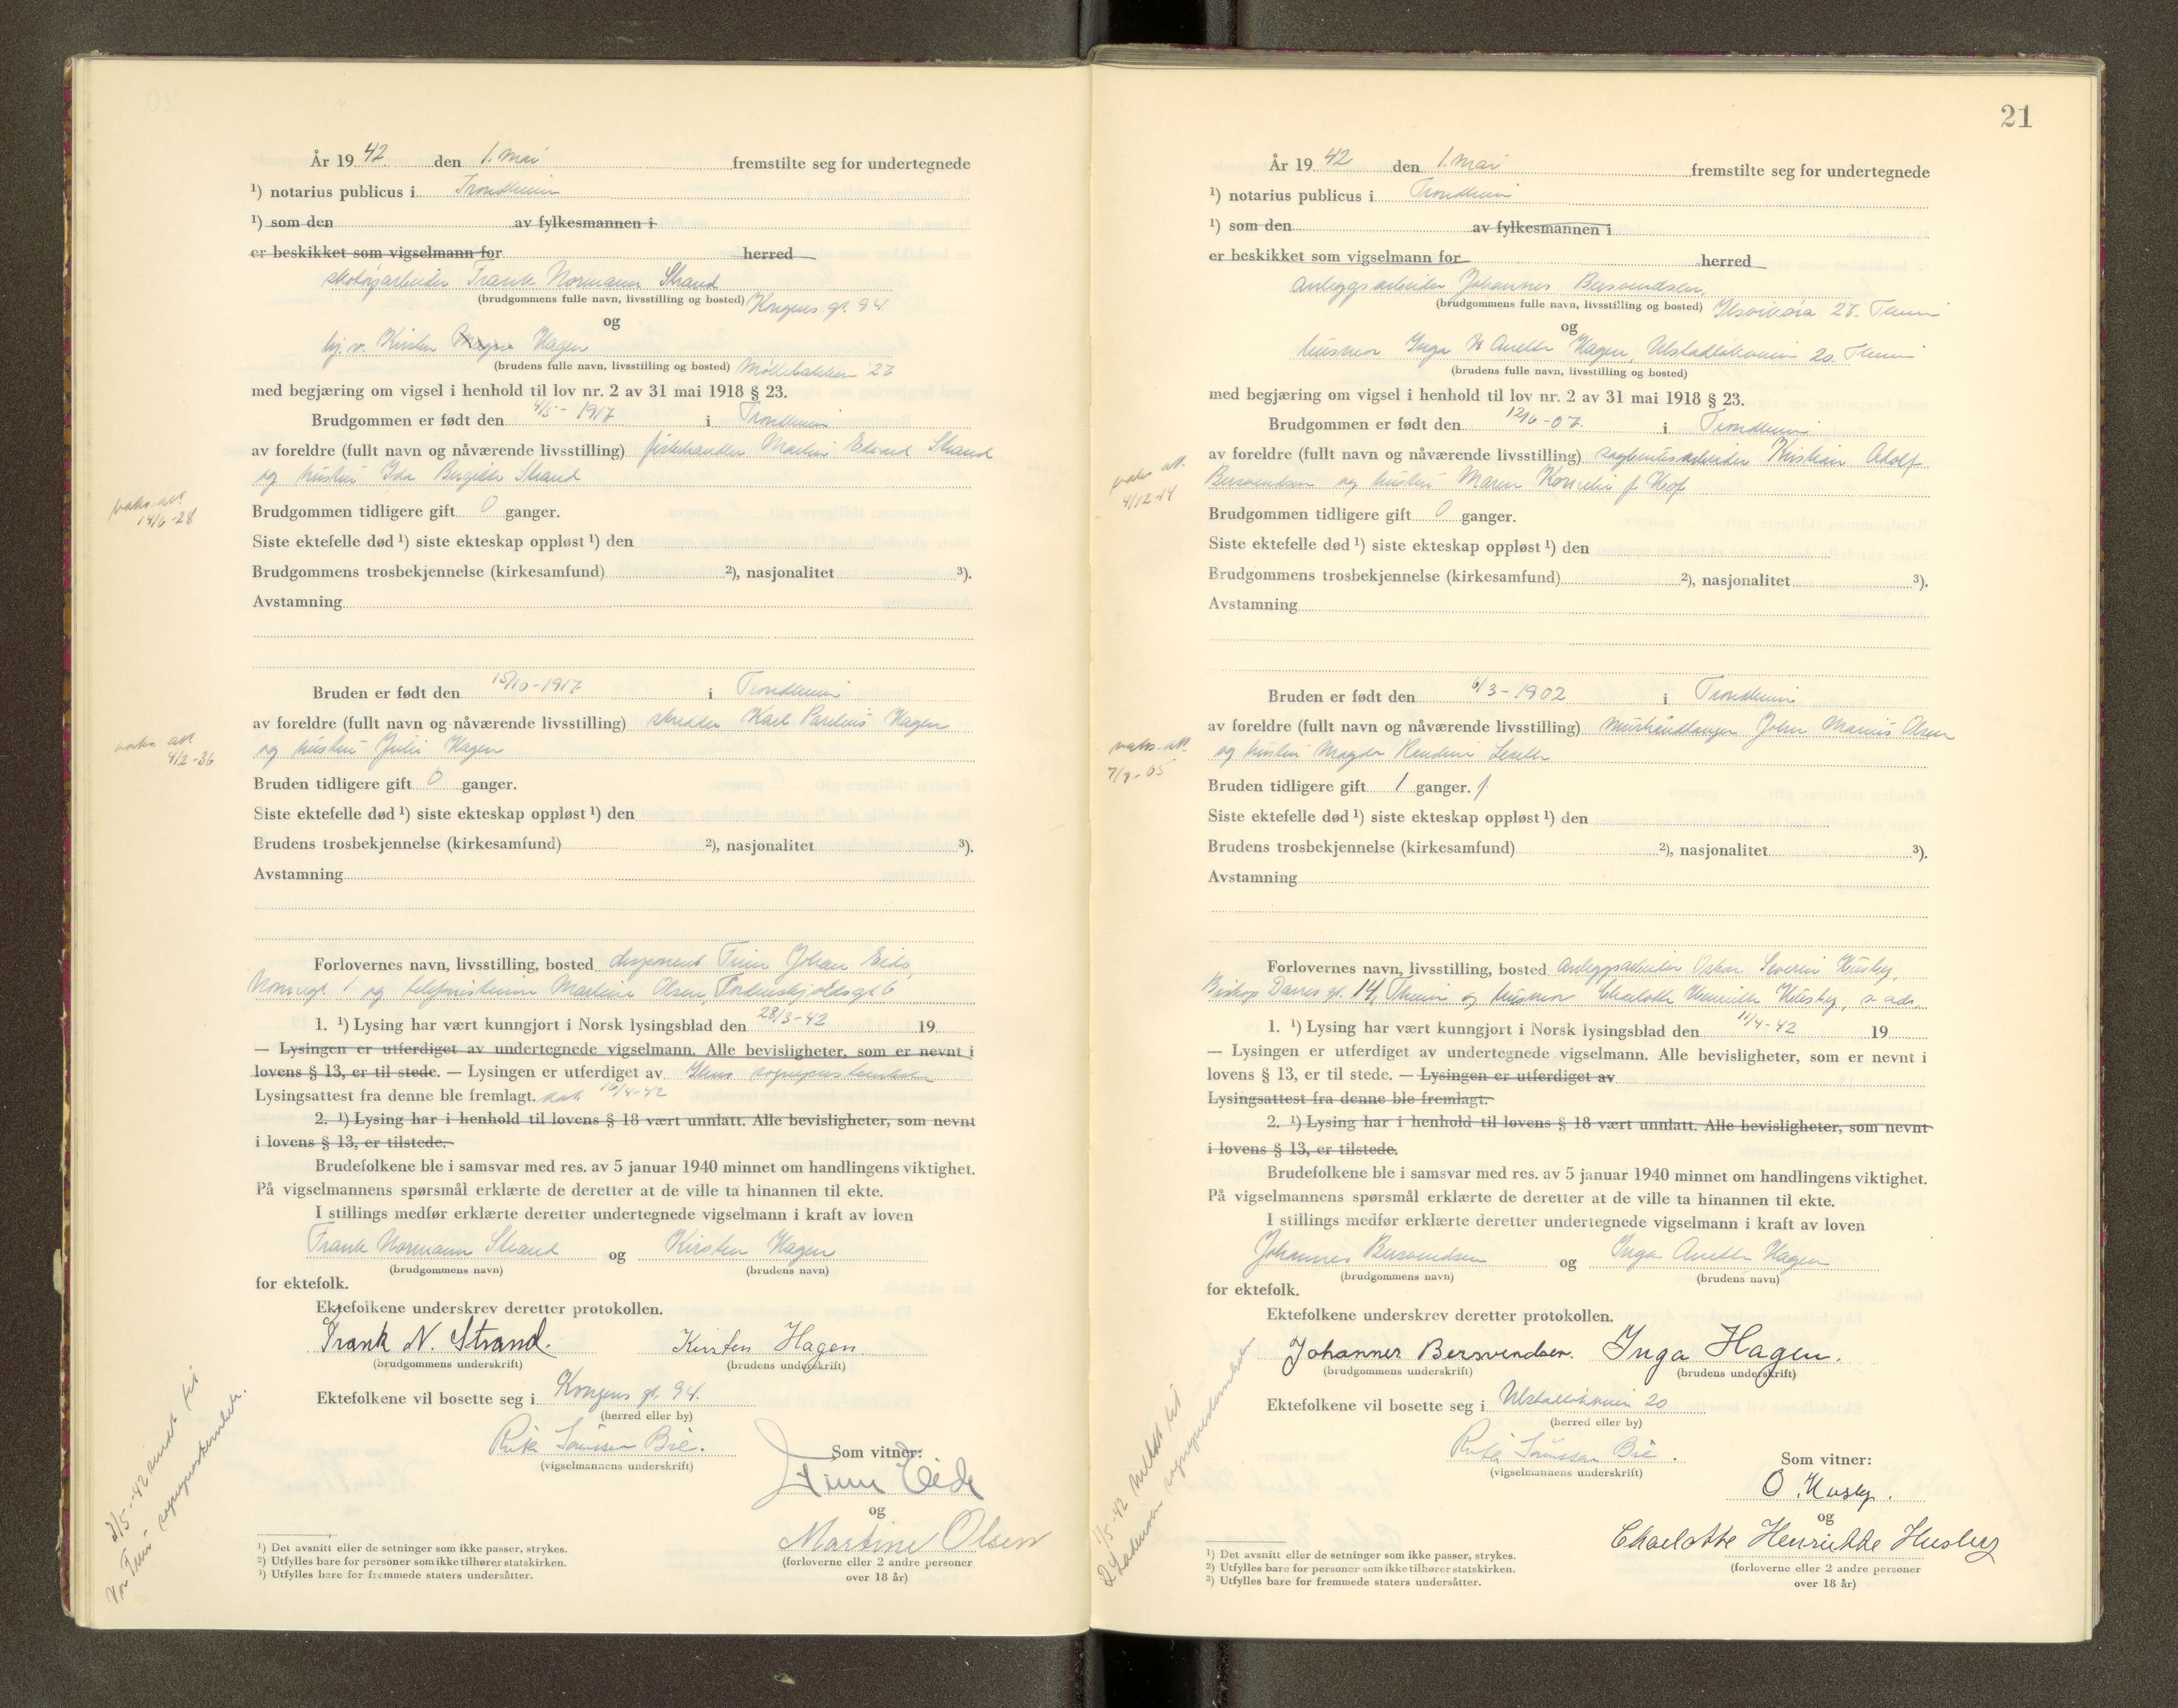 År 19 42 den 1. mai fremstilte seg for undertegnede
¹) notarius publicus i Trondheim
¹) som den av fylkesmannen i
er beskikket som vigselmann for herred
Frank Normann Strand
(brudgommens fulle navn, livsstilling og bosted) Kongens gt. 94
og
hj. v. Kirsten Hagen
(brudens fulle navn, livsstilling og bosted) Möllebakken 27
med begjæring om vigsel i henhold til lov nr. 2 av 31 mai 1918 § 23.
Brudgommen er født den 4/5 - 1917 i Trondheim
av foreldre (fullt navn og nåværende livsstilling) fiskehandler Martin Edvard Strand
og hustru Ida Birgitte Strand
vaks. att
14/6-28
Brudgommen tidligere gift 0 ganger.
Siste ektefelle død ¹) siste ekteskap oppløst ¹) den
Brudgommens trosbekjennelse (kirkesamfund) ²), nasjonalitet ³).
Avstamning
Bruden er født den 15/10-1917 i Trondheim
av foreldre (fullt navn og nåværende livsstilling) skredder Karl Paulius Hagen
og hustru Julie Hagen
vaks. att
4/2-36
Bruden tidligere gift 0 ganger.
Siste ektefelle død ¹) siste ekteskap oppløst ¹) den
Brudens trosbekjennelse (kirkesamfund) ²), nasjonalitet ³).
Avstamning
Forlovernes navn, livsstilling, bosted disponent Finn Johan Eide,
1 og telefonistinne Martine Olsen, Tordenskjoldsgt 6
1. ¹) Lysing har vært kunngjort i Norsk lysingsblad den 28/3-42 19
— Lysingen er utferdiget av undertegnede vigselmann. Alle bevisligheter, som er nevnt i
lovens § 13, er til stede. — Lysingen er utferdiget av Ilens sogneprestembete
Lysingsattest fra denne ble fremlagt. dat. 16/4-42
2. ¹) Lysing har i henhold til lovens § 18 vært unnlatt. Alle bevisligheter, som nevnt
i lovens § 13, er tilstede.
Brudefolkene ble i samsvar med res. av 5 januar 1940 minnet om handlingens viktighet.
På vigselmannens spørsmål erklærte de deretter at de ville ta hinannen til ekte.
I stillings medfør erklærte deretter undertegnede vigselmann i kraft av loven
Frank Normann Strand og Kirsten Hagen
(brudgommens navn) (brudens navn)
for ektefolk.
Ektefolkene underskrev deretter protokollen.
Frank N. Strand. Kirsten Hagen
(brudgommens underskrift) (brudens underskrift)
Ektefolkene vil bosette seg i Kongens gt. 94.
(herred eller by)
(vigselmannens underskrift)
Som vitner:
Finn Eide
og
Martine Olsen
(forloverne eller 2 andre personer
over 18 år)
2/5-42 sendt til
sogneprestembete.
¹) Det avsnitt eller de setninger som ikke passer, strykes.
²) Utfylles bare for personer som ikke tilhører statskirken.
³) Utfylles bare for fremmede staters undersåtter.
21
År 19 42 den 1. mai fremstilte seg for undertegnede
¹) notarius publicus i Trondheim
¹) som den av fylkesmannen i
er beskikket som vigselmann for herred
Anleggsarbeider Johannes Bersvendsen,
(brudgommens fulle navn, livsstilling og bosted) Ilsvikøra 27. Theim
og
hustru Inga Anette Hagen, Ulstadløkveien 20. Theim
(brudens fulle navn, livsstilling og bosted)
med begjæring om vigsel i henhold til lov nr. 2 av 31 mai 1918 § 23.
Brudgommen er født den 12/6-07. i Trondheim
av foreldre (fullt navn og nåværende livsstilling) sagbruksarbeider Kristian Adolf
Bersvendsen og hustru Maren Kornelie f. Hof
vaks. att.
4/12-14
Brudgommen tidligere gift 0 ganger.
Siste ektefelle død ¹) siste ekteskap oppløst ¹) den
Brudgommens trosbekjennelse (kirkesamfund) ²), nasjonalitet ³).
Avstamning
Bruden er født den 6/3-1902 i Trondheim
av foreldre (fullt navn og nåværende livsstilling) murhåndlanger Johan Marius Olsen
og hustru Magda
vaks. att.
7/9-05
Bruden tidligere gift 1 ganger. f.
Siste ektefelle død ¹) siste ekteskap oppløst ¹) den
Brudens trosbekjennelse (kirkesamfund) ²), nasjonalitet ³).
Avstamning
Forlovernes navn, livsstilling, bosted Anleggsarbeider Oskar Severin Husby,
Biskop Darres gt. 14, Theim og hustru Charlotte Henriette Husby, s. ads.
1. ¹) Lysing har vært kunngjort i Norsk lysingsblad den 11/4-42 19
— Lysingen er utferdiget av undertegnede vigselmann. Alle bevisligheter, som er nevnt i
lovens § 13, er til stede. — Lysingen er utferdiget av
Lysingsattest fra denne ble fremlagt.
2. ¹) Lysing har i henhold til lovens § 18 vært unnlatt. Alle bevisligheter, som nevnt
i lovens § 13, er tilstede.
Brudefolkene ble i samsvar med res. av 5 januar 1940 minnet om handlingens viktighet.
På vigselmannens spørsmål erklærte de deretter at de ville ta hinannen til ekte.
I stillings medfør erklærte deretter undertegnede vigselmann i kraft av loven
Johannes Bersvendsen og Inga Anette Hagen
(brudgommens navn) (brudens navn)
for ektefolk.
Ektefolkene underskrev deretter protokollen.
Johannes Bersvendsen. Inga Hagen.
(brudgommens underskrift) (brudens underskrift)
Ektefolkene vil bosette seg i Ulstadløkveien 20
(herred eller by)
(vigselmannens underskrift)
Som vitner:
O. Husby.
og
Charlotte Henriette Husby
(forloverne eller 2 andre personer
over 18 år)
2/5-42 meldt til
Lademoen sogneprestembete.
¹) Det avsnitt eller de setninger som ikke passer, strykes.
²) Utfylles bare for personer som ikke tilhører statskirken.
³) Utfylles bare for fremmede staters undersåtter.